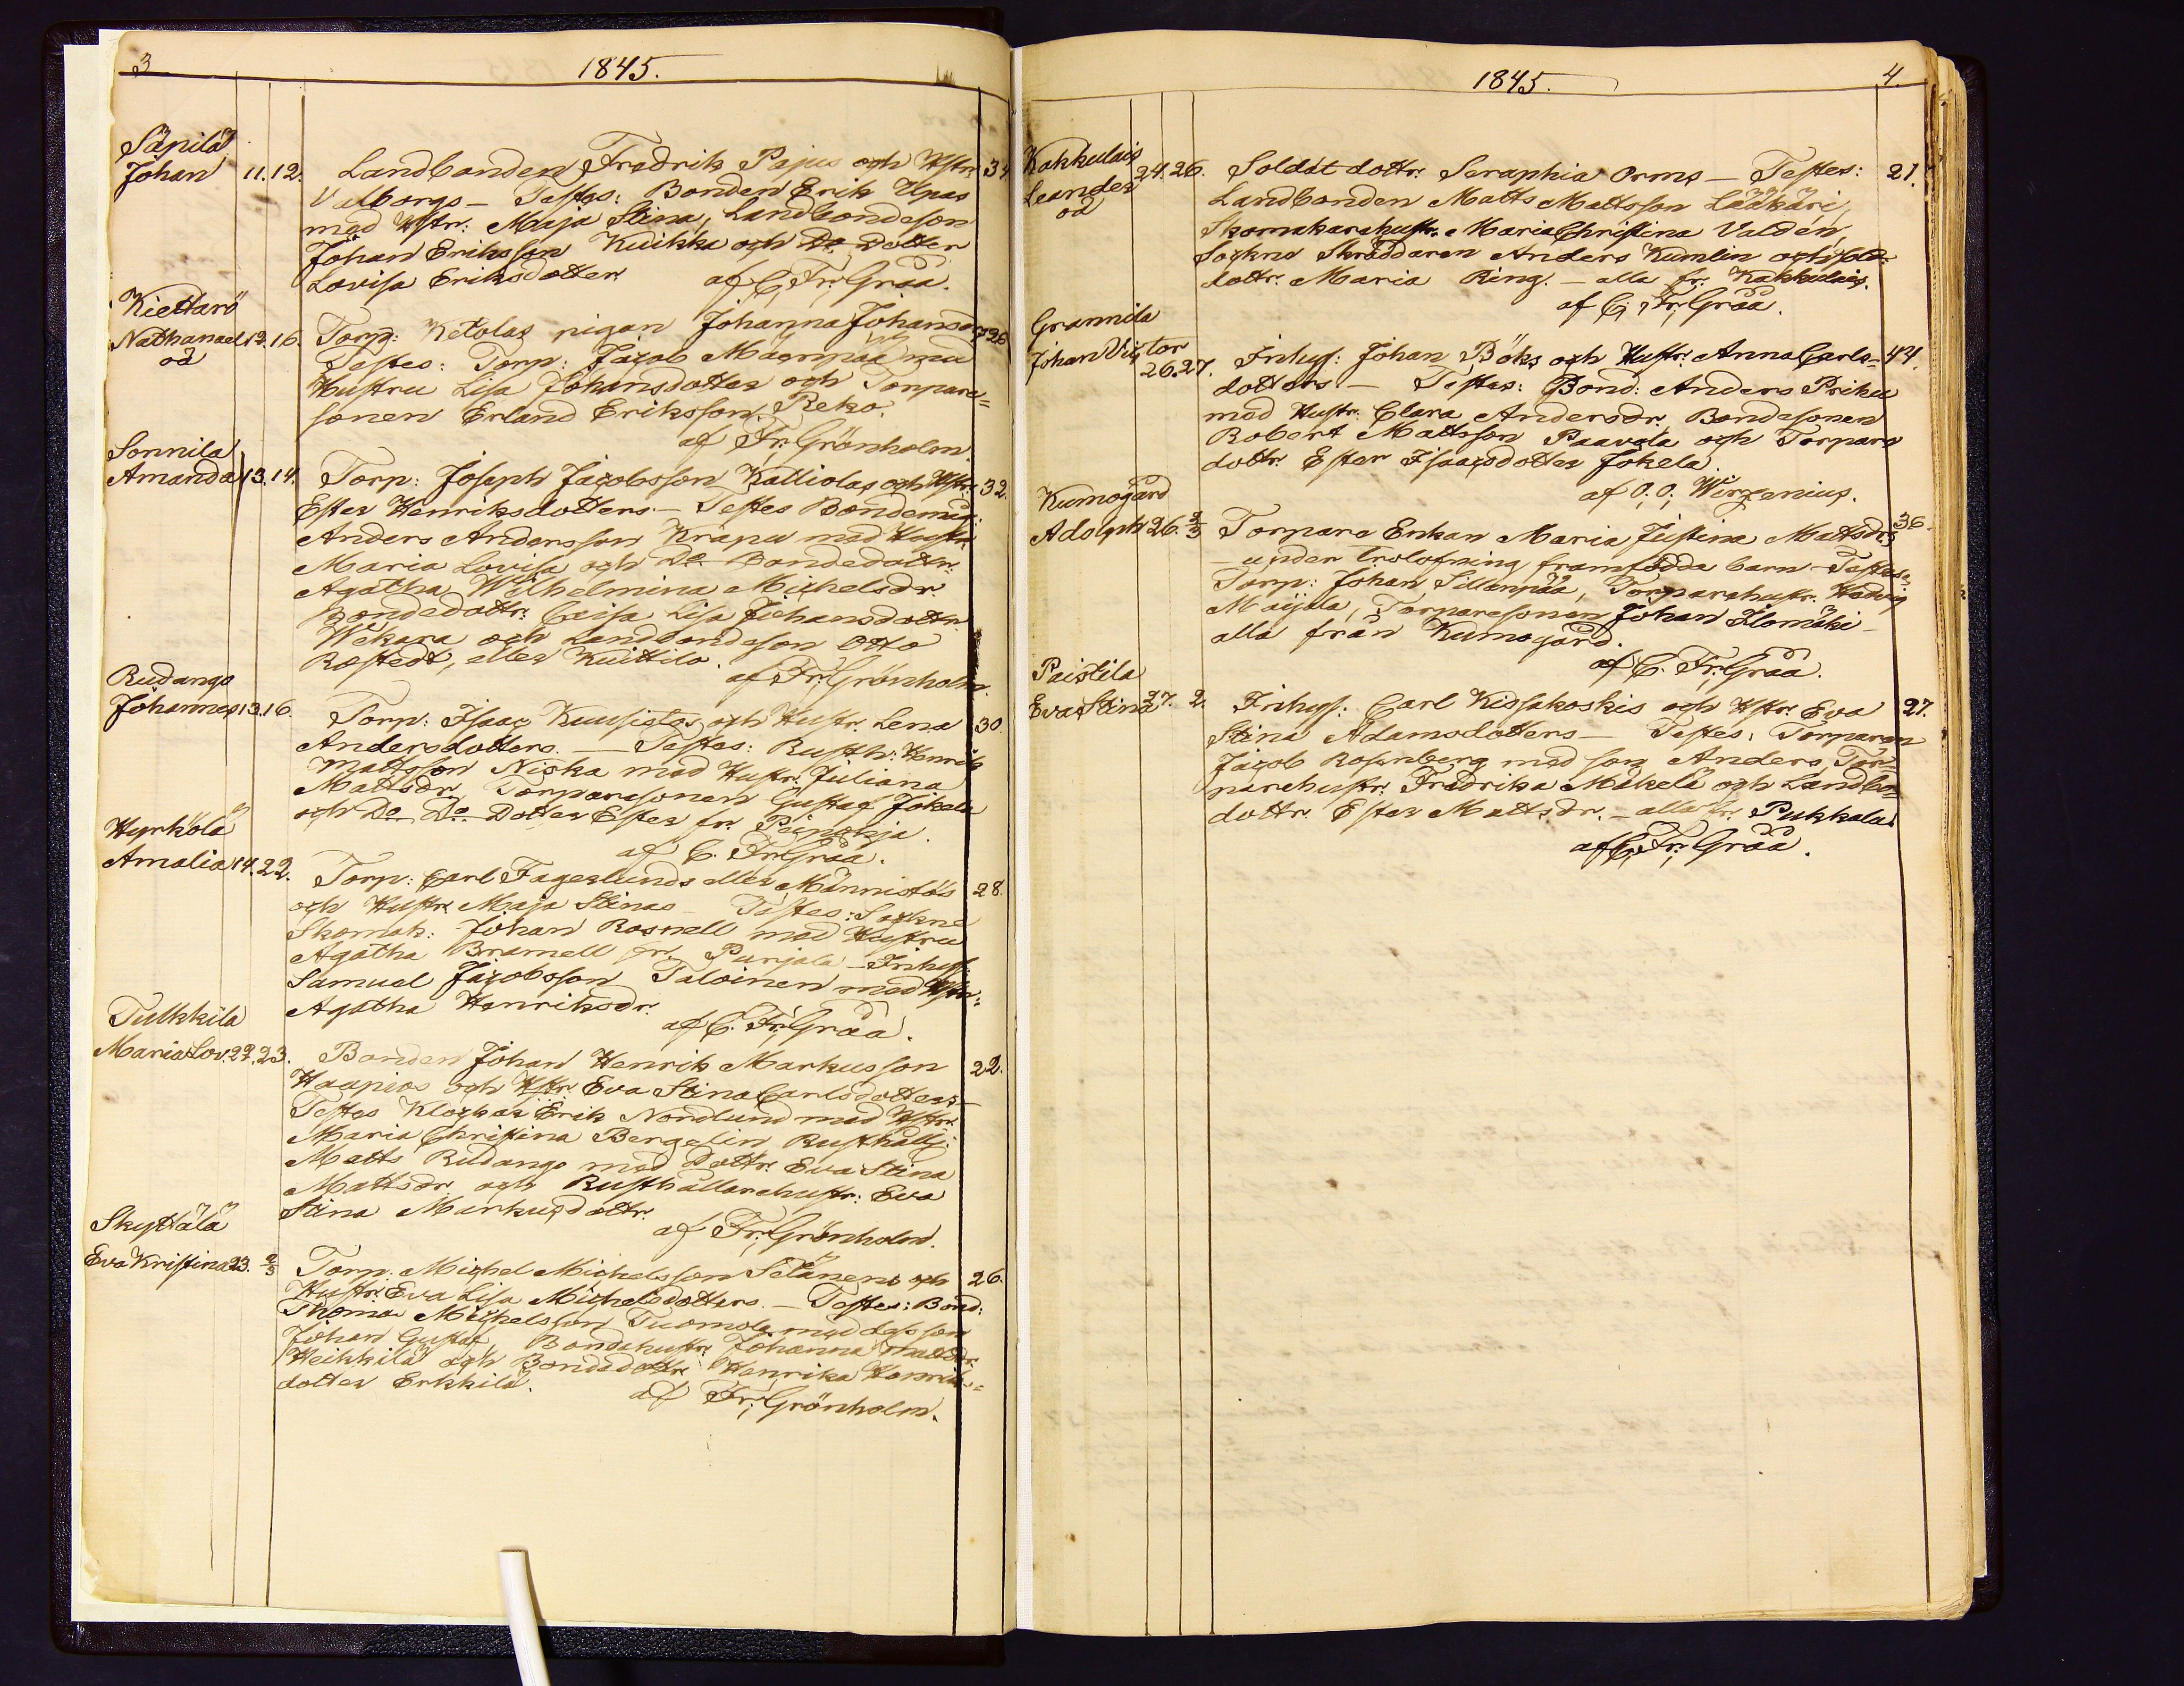 3
1845.
Säpilä
Johan 11. 12. Landbonden Fredrik Pajus och Hstr: 34
Valborgs – Testes: Bonden Erik Upas
med Hstr: Maja Stina, Landbondeson
Johan Eriksson Kuikka och Do Dotter
Lovisa Eriksdotter
af C, Fr; Gråå.
Kiettarö
Nathanael 12. 16. Torp: Ketolas pigan Johanna Johansdrs 26
oä Testes: Torp: Jacob Mäenpää med
Hustru Lisa Johansdotter och Torpare=
sonen Erland Eriksson Reko.
af Fr; Grönholm
Sonnila
Amanda 13. 14. Torp: Joseph Jacobsson Kalliolas och Hstr: 32.
Ester Henriksdotters – Testes Bondemåg
Anders Andersson Krapu med Hustr
Maria Lovisa och Do Bondedottr:
Agatha Wilhelmina Michelsdr
Bondedottr: Caisa Lisa Johansdotter
Wekara och Landbondeson Otto
Rostedt, eller Kuittilo.
af Fr; Grönholm.
Rudango
Johannes 13. 16. Torp: Isaac Kuusistos och Hustr. Lena 30.
Andersdotters. — Testes: Rusth: Henrik
Mattsson Niska med Hustr: Juliana
Mattsdr, Torparesonen Gustaf Jokela
och Do Do Dotter Ester fr.
af C. Fr; Gråå.
Hyrkölä
Amalia 14. 22. Torp: Carl Fagerlunds eller Männistös 28.
och Hustr: Maja Stinas – Testes: Sockne
Skomak: Johan Rosnell med Hustru
Agatha Bramell fr. Purjala – Inhys:
Samuel Jacobsson Taloinen med Hstr:
Agatha Henriksdr.
af C. Fr; Gråå.
Tulkkila
Maria Lov. 22. 23. Bonden Johan Henrik Markusson 22.
Haapios och Hstr: Eva Stina Carlsdotters –
Testes Klockar Erik Nordlund med Hstr:
Maria Christina Bergelin Rusthåll:
Matts Rudango med Dottr: Eva Stina
Mattsdr och Rusthållarehustr: Eva
Stina Markusdottr.
af Fr; Grönholm.
Skyttälä
Eva Kristina 23. 2/3 Torp. Michel Michelsson Setänens och 26.
Hustr: Eva Lisa Michelsdotters. — Testes: Bond:
Thomas Michelsson Tuomola med dess son
Johan Gustaf, Bondehustr: Johanna Mattsdr
Heikkilä och Bondedottr: Henrika Henriks=
dotter Erkkilä.
af Fr; Grönholm.
1845.
4.
Kakkulais
Leander 24. 26. Soldat dottr: Seraphia Orms — Testes: 21.
oä Landbonden Matts Mattsson Lääkäri,
Skomakarehustr: Maria Christina Valdén,
Sockne Skräddaren Anders Kumlin och Sold:
dottr: Maria Ring. – alla fr: Kakkulais.
af C; Fr; Gråå.
Grannila
Johan Victor
26. 27. Inhys: Johan Böks och Hustr: Anna Carls= 44.
dotters — Testes: Bond: Anders Prihu
med Hustr: Clara Andersdr. Bondesonen
Robert Mattsson Paavola och Torpare
dottr: Ester Isaacsdotter Jokela.
af O; O; Wirzenius.
Kumogård
Adolph 26. 2/3 Torpare Enkan Maria Justina Mattsdrs 36.
– under trolofning framfödda barn – Testes:
Torp: Johan Sillanpää, Torparehustr: Hedvig
Maijala, Torparesonen Johan Ilomäki –
alla från Kumogård.
af C. Fr; Gråå.
Paistila
Eva Stina 27. 2. Inhys: Carl Kissakoskis och Hstr: Eva 27.
Stina Adamsdotters – Testes: Torparen
Jacob Rosenberg med son Anders, Tor=
parehustr: Fredrika Mäkelä och Landbo=
dottr: Ester Mattsdr. – alla fr. Pukkala.
af C; Fr; Gråå.